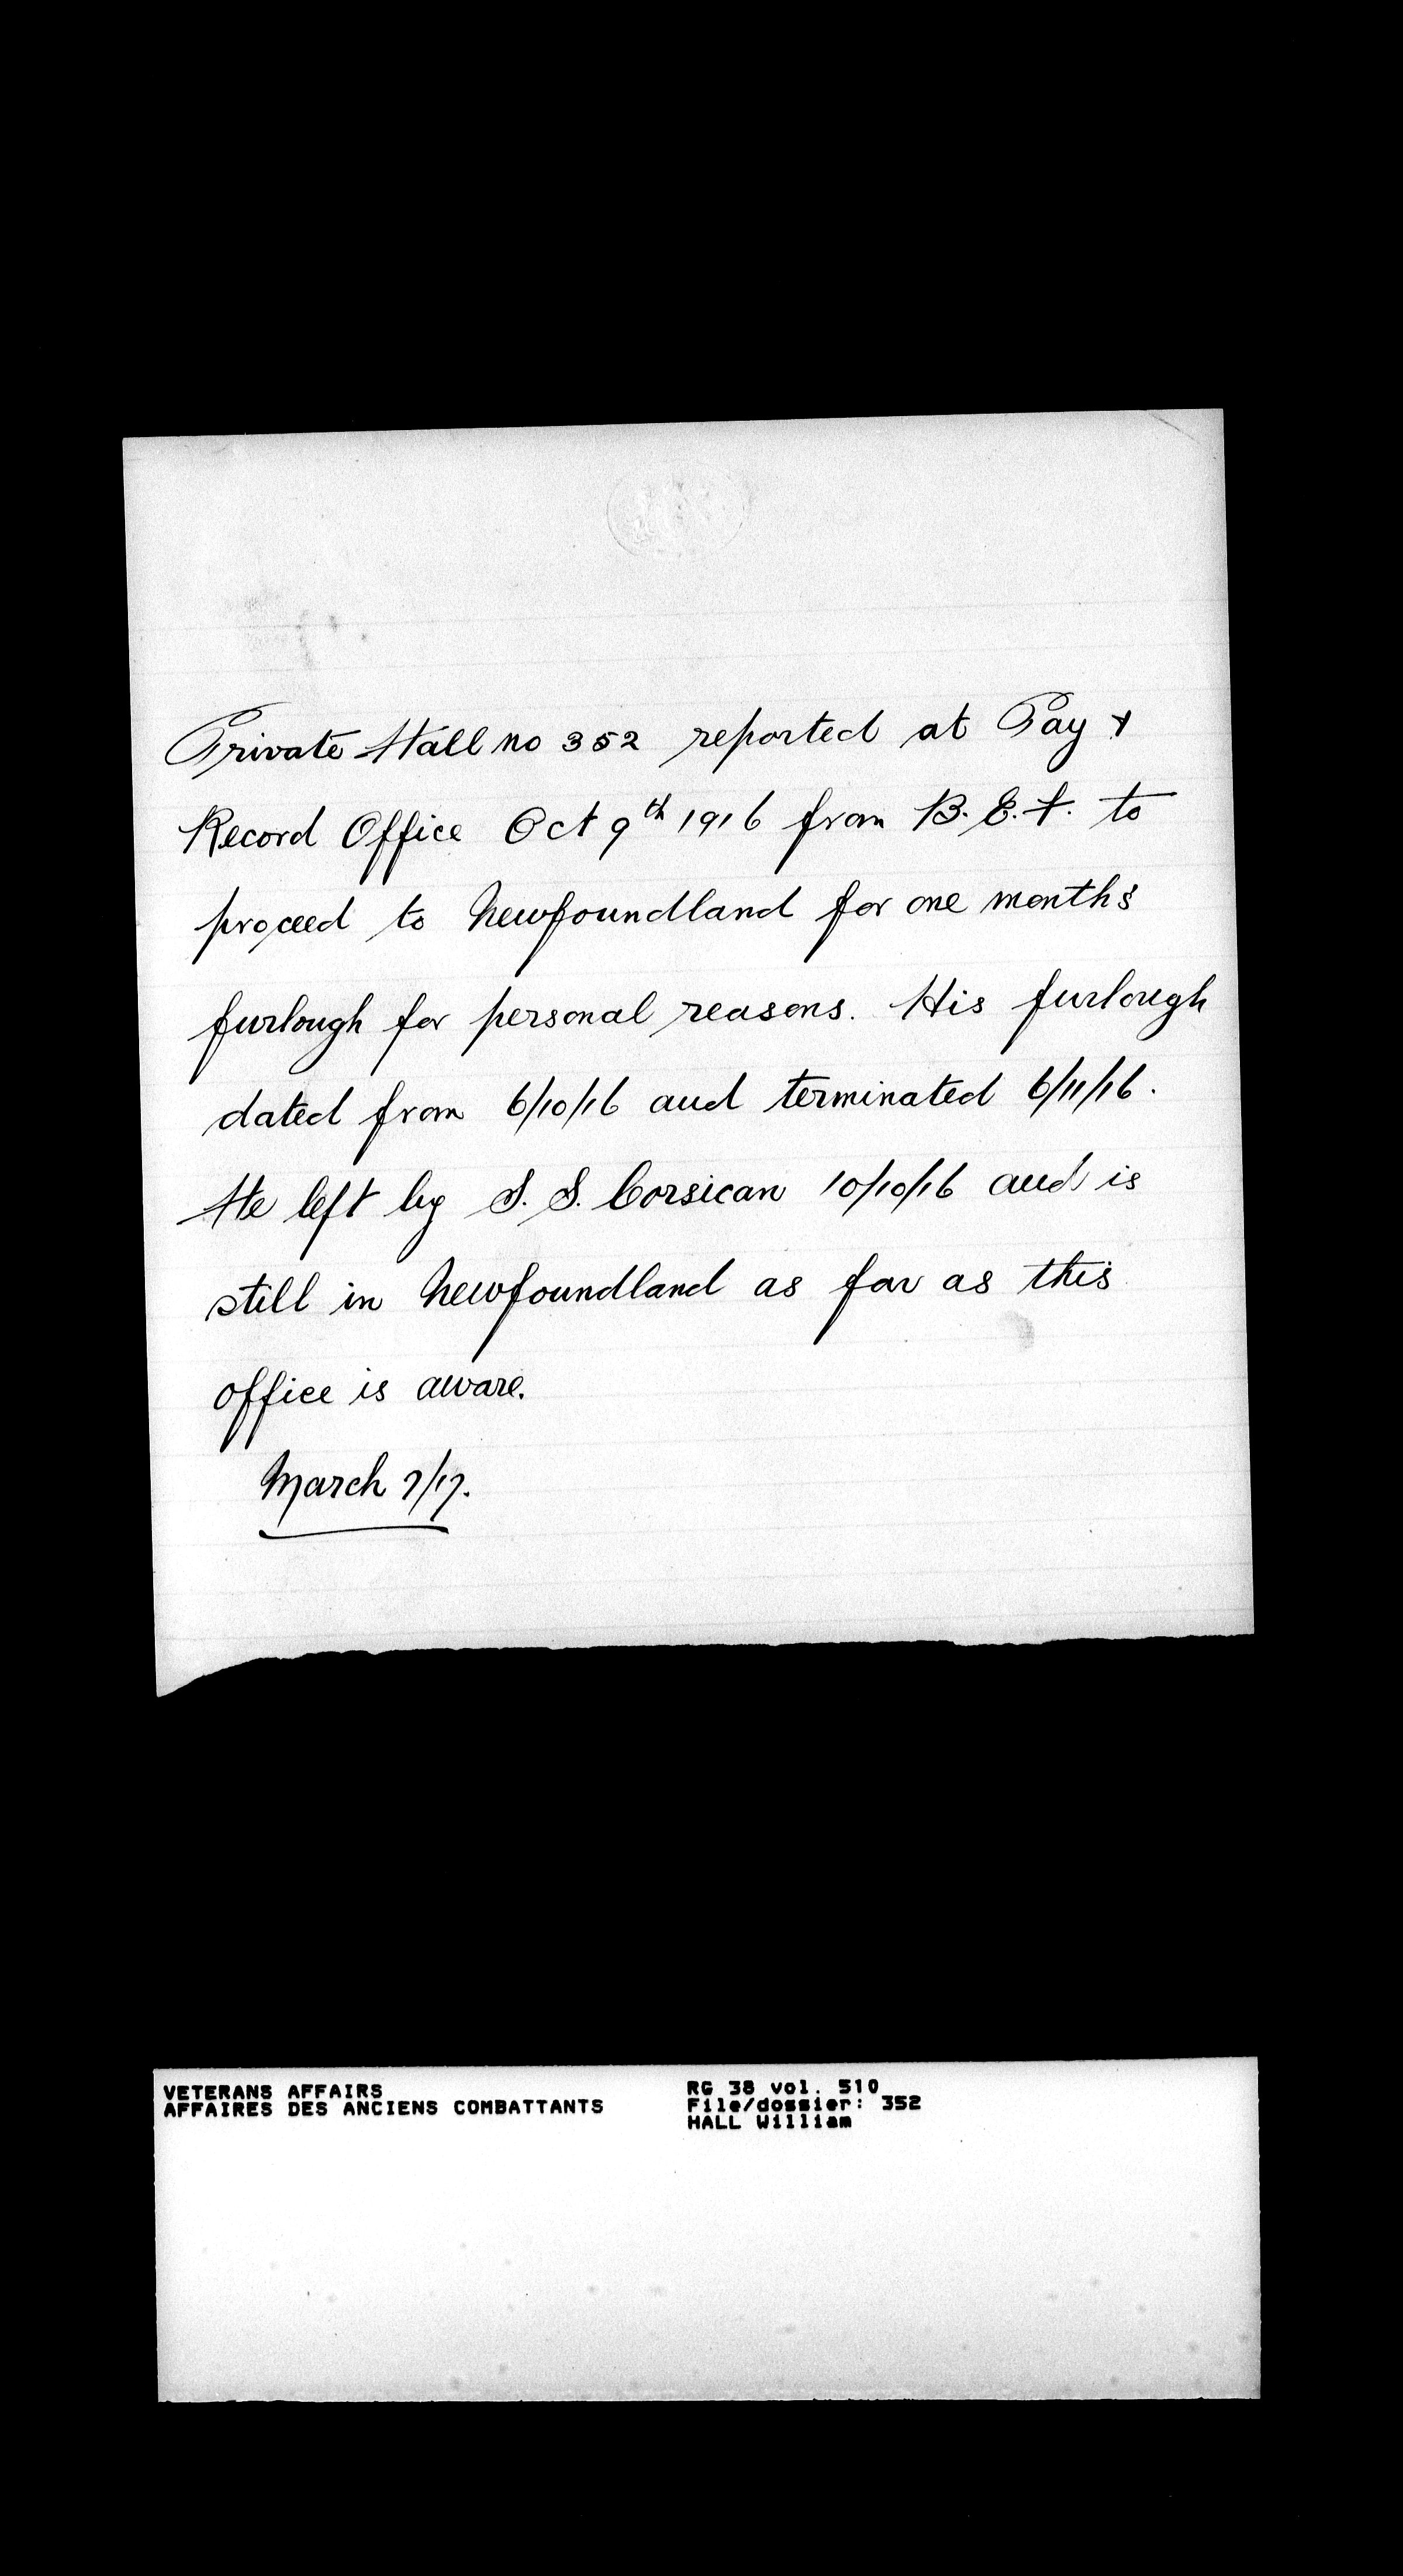 Private Hall no 352 reported at Pay &
Record Office Oct 9th 1916 from B. E. F. to
proceed to Newfoundland for one months
furlough for personal reasons. His furlough
dated from 6/10/16 and terminated 6/11/16.
He left by S. S. Corsican 10/10/16 and is
still in Newfoundland as far as this
office is aware.
March 7/17.
VETERANS AFFAIRS
AFFAIRES DES ANCIENS COMBATTANTS
RG 38 vol. 510
File/dossier: 352
HALL William